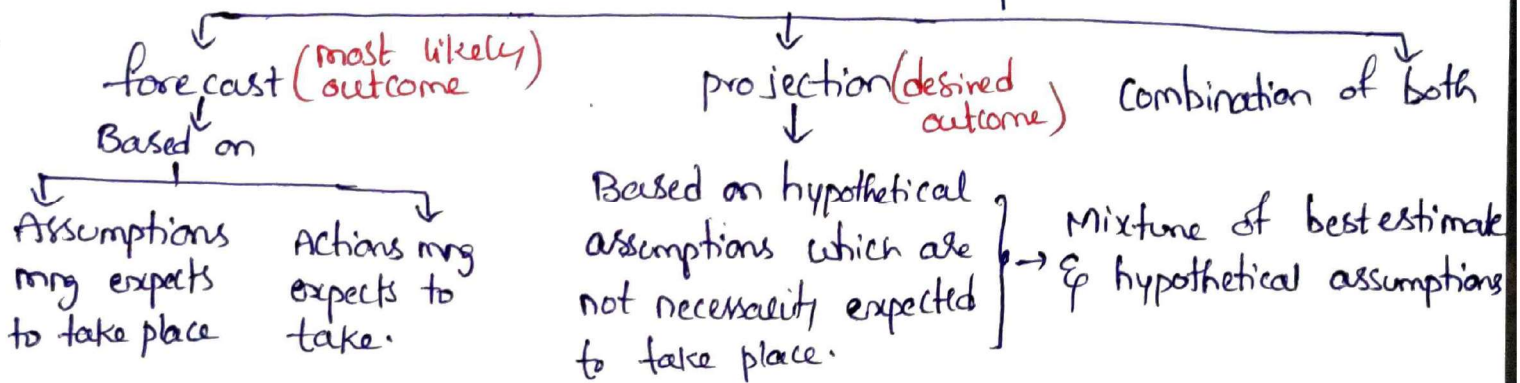 forecast (most likely
outcome)
Based on
Assumptions
mng expects
to take place
Actions mng
expects to
take.
projection (desired
outcome)
Based on hypothetical
assumptions which are
not necessarity expected
to take place.
→ Mixture of best estimate
& hypothetical assumptions
Combination of both